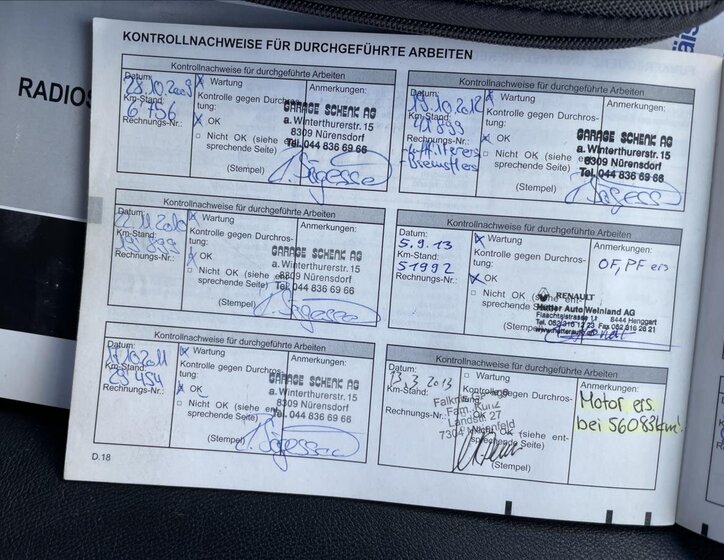 RADIOS
KONTROLLNACHWEISE FÜR DURCHGEFÜHRTE ARBEITEN
Kontrollnachweise für durchgeführte Arbeiten
Datum: 28.10.2009
Km-Stand: 6756
Rechnungs-Nr.:
X Wartung
Kontrolle gegen Durchros-
tung:
X OK
□ Nicht OK (siehe
sprechende Seite)
(Stempel)
Anmerkungen:
GARAGE SCHENK AG
a. Winterthurerstr. 15
8309 Nürensdorf
Tel. 044 836 69 66
Kontrollnachweise für durchgeführte Arbeiten
Datum: 19.10.2012
Km-Stand:
Rechnungs-Nr.:
X Wartung
Kontrolle gegen Durchros-
tung:
X OK
□ Nicht OK (siehe ent-
sprechende Seite)
(Stempel)
Anmerkungen:
GARAGE SCHENK AG
a. Winterthurerstr. 15
8309 Nürensdorf
Tel. 044 836 69 66
Kontrollnachweise für durchgeführte Arbeiten
Datum:
Km-Stand:
Rechnungs-Nr.:
X Wartung
Kontrolle gegen Durchros-
tung:
X OK
□ Nicht OK (siehe
sprechende Seite)
(Stempel)
Anmerkungen:
GARAGE SCHENK AG
a. Winterthurerstr. 15
8309 Nürensdorf
Tel. 044 836 69 66
Kontrollnachweise für durchgeführte Arbeiten
Datum: 5.9.13
Km-Stand: 51992
Rechnungs-Nr.:
X Wartung
Kontrolle gegen Durchros-
tung:
X OK
□ Nicht OK (siehe ent-
sprechende Seite)
(Stempel)
Anmerkungen:
OF, PF ers
RENAULT
Auto Weinland AG
8444 Henggart
Kontrollnachweise für durchgeführte Arbeiten
Datum:
Km-Stand:
Rechnungs-Nr.:
X Wartung
Kontrolle gegen Durchros-
tung:
X OK
□ Nicht OK (siehe ent-
sprechende Seite)
(Stempel)
Anmerkungen:
GARAGE SCHENK AG
a. Winterthurerstr. 15
8309 Nürensdorf
Tel. 044 836 69 66
Kontrollnachweise für durchgeführte Arbeiten
Datum: 13.3.2013
Km-Stand:
Rechnungs-Nr.:
□ Wartung
Kontrolle gegen Durchros-
tung:
□ OK
□ Nicht OK (siehe ent-
sprechende Seite)
(Stempel)
Anmerkungen:
Fam. Kunz
Landstr. 27
Motor ers.
bei 56083km!
D.18